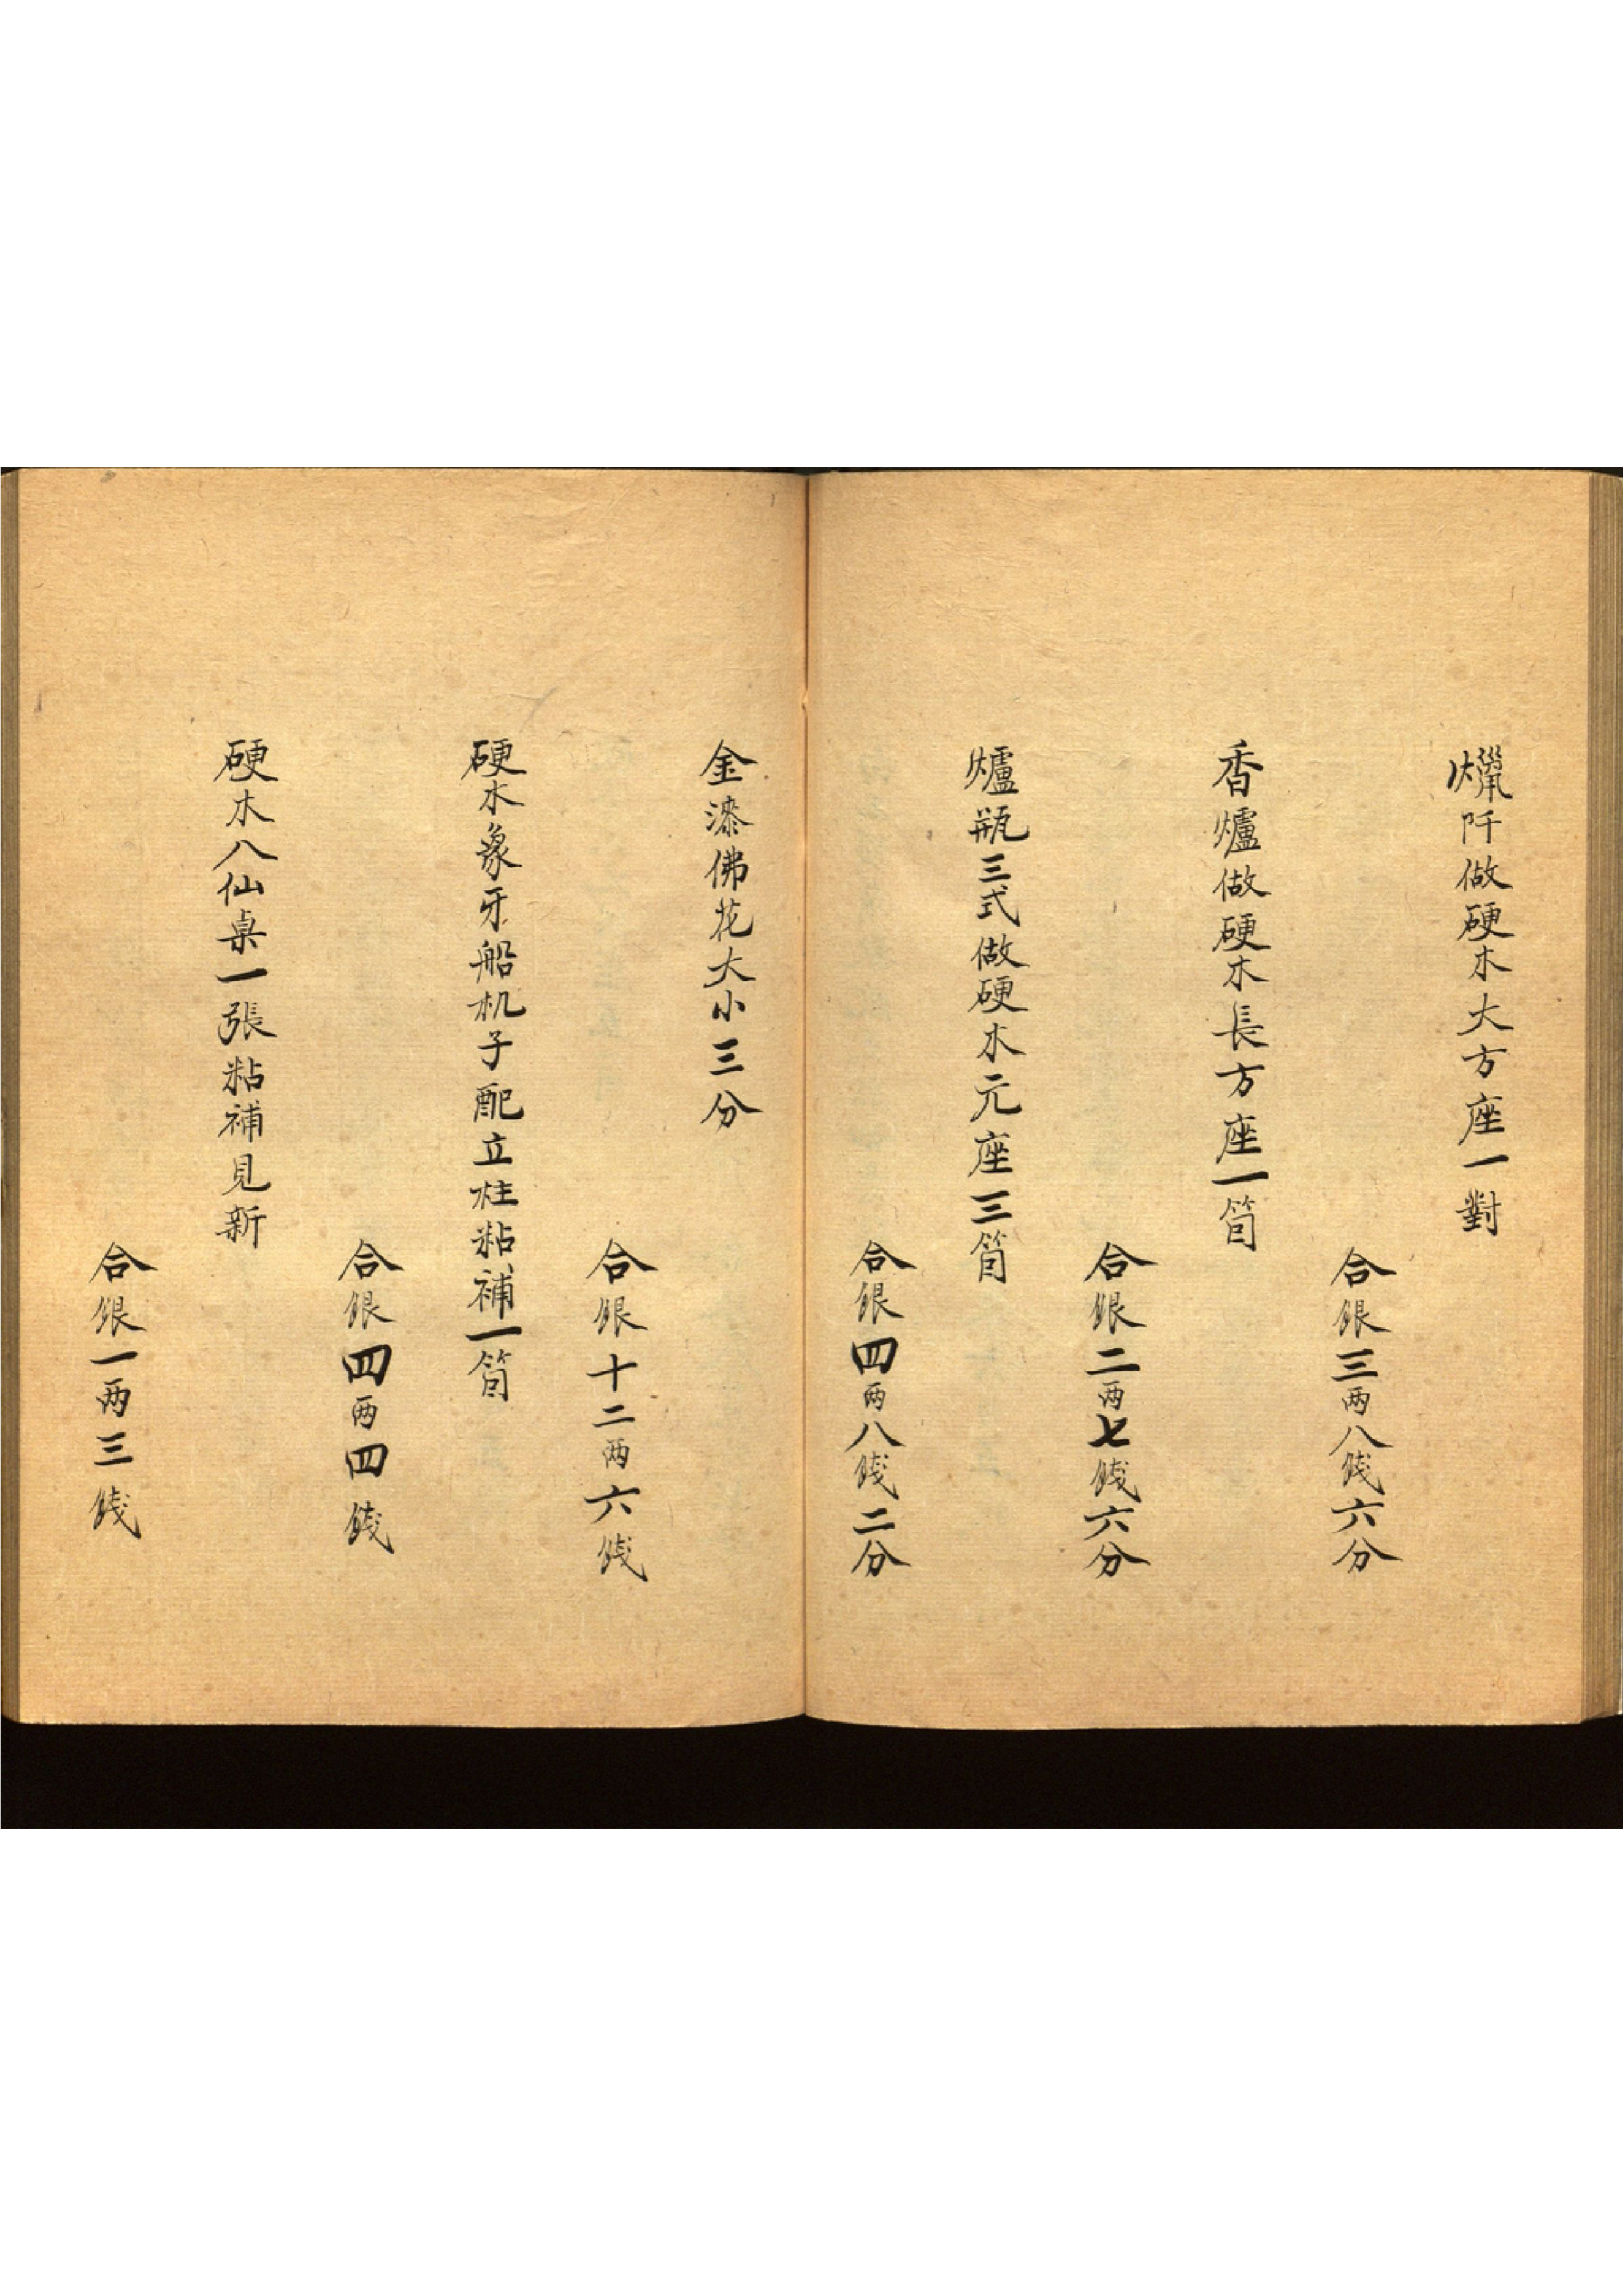 爉阡做硬木大方座一對
合銀三两八餞六分
香爐做硬木長方座一筒
合銀二两七餞六分
爐瓶三式做硬木元座三筒
合銀四两八餞二分
金漆佛花大小三分
合銀十二两六餞
硬木象牙船机子配立柱粘補一筒
合銀四两四餞
硬木八仙桌一張粘補見新
合銀一两三餞